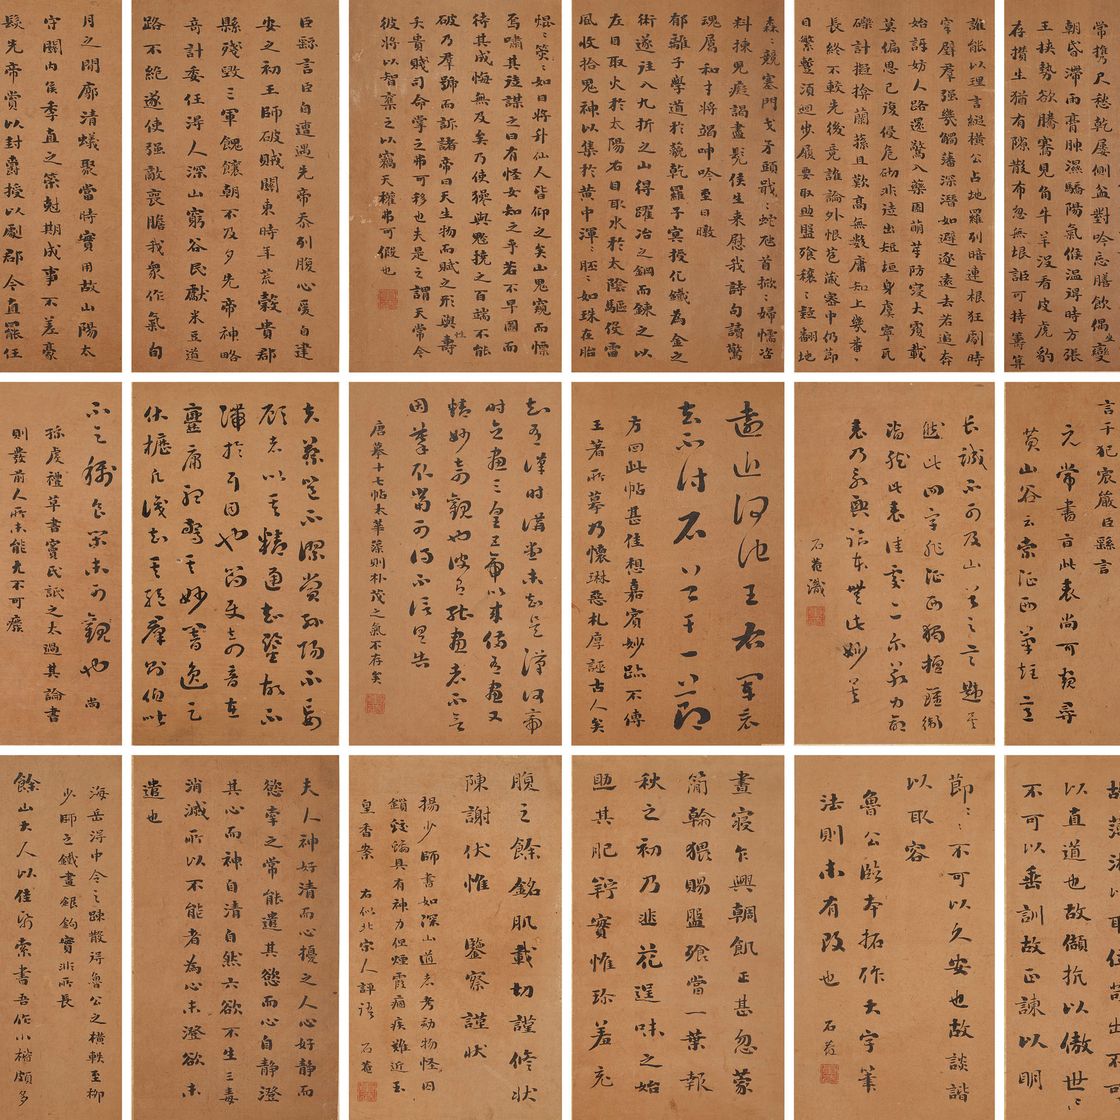 常携尺愁乾屡側盆對吟忘膳飲偶變
朝昏滯雨膏腫濕驕陽氣候温得時方張
王挾勢欲騰騫見角牛羊没看皮虎豹
存攢生猶有隙散布忽無垠詎可持籌算
誰能以理言縱横公占地羅列暗連根狂劇時
穿壁羣强幾觸藩深潛如避逐遠去若追奔
始訝妨人路還驚入藥園萌芽防寖大覆載
莫偏恩已復侵危砌非徒出短垣身虞寧瓦
礫計擬掩蘭蓀且歎高無數庸知上幾番
長終不較先後竟誰論外恨苞藏密中仍節
日繁蹔須迴步履要取助盤飧穰〻疑翻地
森〻競塞門戈矛頭戢〻蛇虺首掀〻婦懦咨
料揀兒癡謁盡髡侯生來慰我詩句讀驚
魂屬和才將竭呻吟至日暾
郁離子學道於藐乾羅子冥授化鐵為金之
術遂往入九折之山得躍冶之鋼而鍊之以
左目取火於太陽右目取水於太陰驅役雷
風收拾鬼神以集於黄中渾〻胚〻如珠在胎
焜〻熒〻如日將升仙人皆仰之矣山鬼窺而慓
焉嘯其徒謀之曰有怪女知之乎若不早圖而
待其成悔無及矣乃使獶與魃撓之百端不能
破乃羣號而訴諸帝曰天生物而賦之形與壽
夭貴賤司命掌之弗可移也夫是之謂天常今
彼將以智槖之以竊天權弗可假也
臣繇言臣自遭遇先帝忝列腹心爰自建
安之初王師破賊關東時年荒穀貴郡
縣殘毀三軍餽饟朝不及夕先帝神略
奇計委任得人深山窮谷民獻米豆道
路不絶遂使强敵喪膽我衆作氣旬
月之間廓清蟻聚當時實用故山陽太
守關内侯季直之策尅期成事不差豪
髮先帝賞以封爵授以劇郡今直罷任
言干犯宸嚴臣繇言
元常書言此表尚可窺尋
黄山谷云索征西筆短意
長誠不可及山谷之言
然此四字非征西獨擅
此表佳處一一示
表乃
石菴識
遠近何也王右軍表
去不付石
方回此帖甚佳想嘉賓妙跡不傳
王著所摹乃懷琳惡札厚誣古人矣
知有漢時講堂未知是漢何帝
時立畫三皇五帝以来備有畫又
精妙甚可觀也彼有能畫者不
因摹取當可得不信具告
唐摹十七帖太華藻則朴茂之氣不存矣
夫蔡邕不謬賞孫陽不妄
顧者以其精通故不
滯於耳目也向使奇音在
爨庸聽驚其妙響逸足
伏櫪凡識知其絶羣則伯喈
不足稱良樂未可觀也尚
孫虔禮草書竇氏詆之太過其論書
則發前人所未能尤不可廢
以直道也故傲世〻
不可以垂訓故正諫以明
節〻不可以久安也故談諧
以取容
魯公臨本拓作大字筆
法則未有改也石菴
晝寢乍興輖飢正甚忽蒙
簡翰猥賜盤飧當一葉報
秋之初乃韭花逞味之始
助其肥羜實惟珍羞充
腹之餘銘肌載切謹修狀
陳謝伏惟鑒察謹狀
楊少師書如深山道者考劾物怪因
鎖鉸鐍具有神力但煙霞痼疾難近玉
皇香案右似北宋人評語石菴
夫人神好清而心擾之人心好静而
慾牽之常能遣其慾而心自静澄
其心而神自清自然六欲不生三毒
消滅所以不能者為心未澄欲未
遣也
海岳得中令之疎散得魯公之横軼至柳
少師之鐵畫銀鈎實非所長
餘山大人以佳紙索書吾作小楷頗多